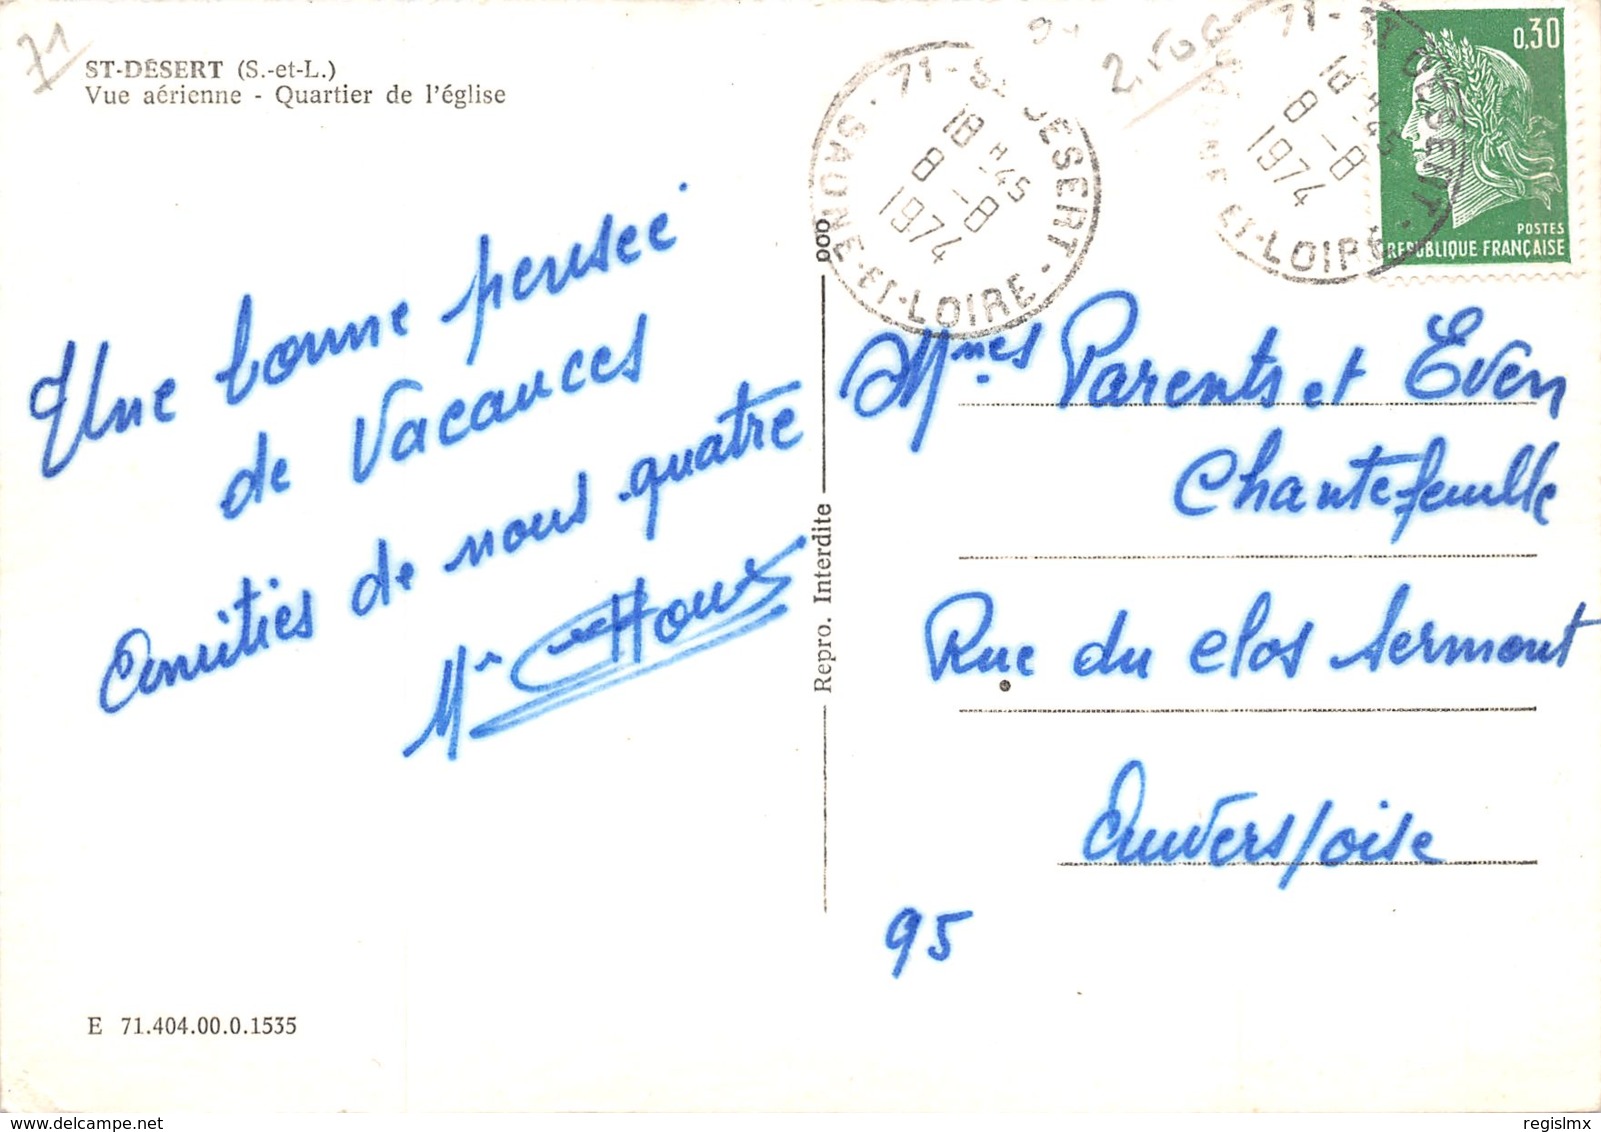 71
ST-DÉSERT (S.-et-L.)
Vue aérienne - Quartier de l'église
Une bonne pensée
de Vacances
Amitiés de nous quatre
E 71.404.00.0.1535
Repro. Interdite
000
71 - ST DESERT · SAONE-ET-LOIRE ·
18 H 45
8 - 8
1974
71 - ST DESERT · SAONE-ET-LOIRE
18 H 45
8 - 8
1974
0,30
POSTES
REPUBLIQUE FRANÇAISE
Mmes Parents et Even
Chantefeuille
Rue du clos Sermont
Auvers/oise
95
www.delcampe.net
regislmx